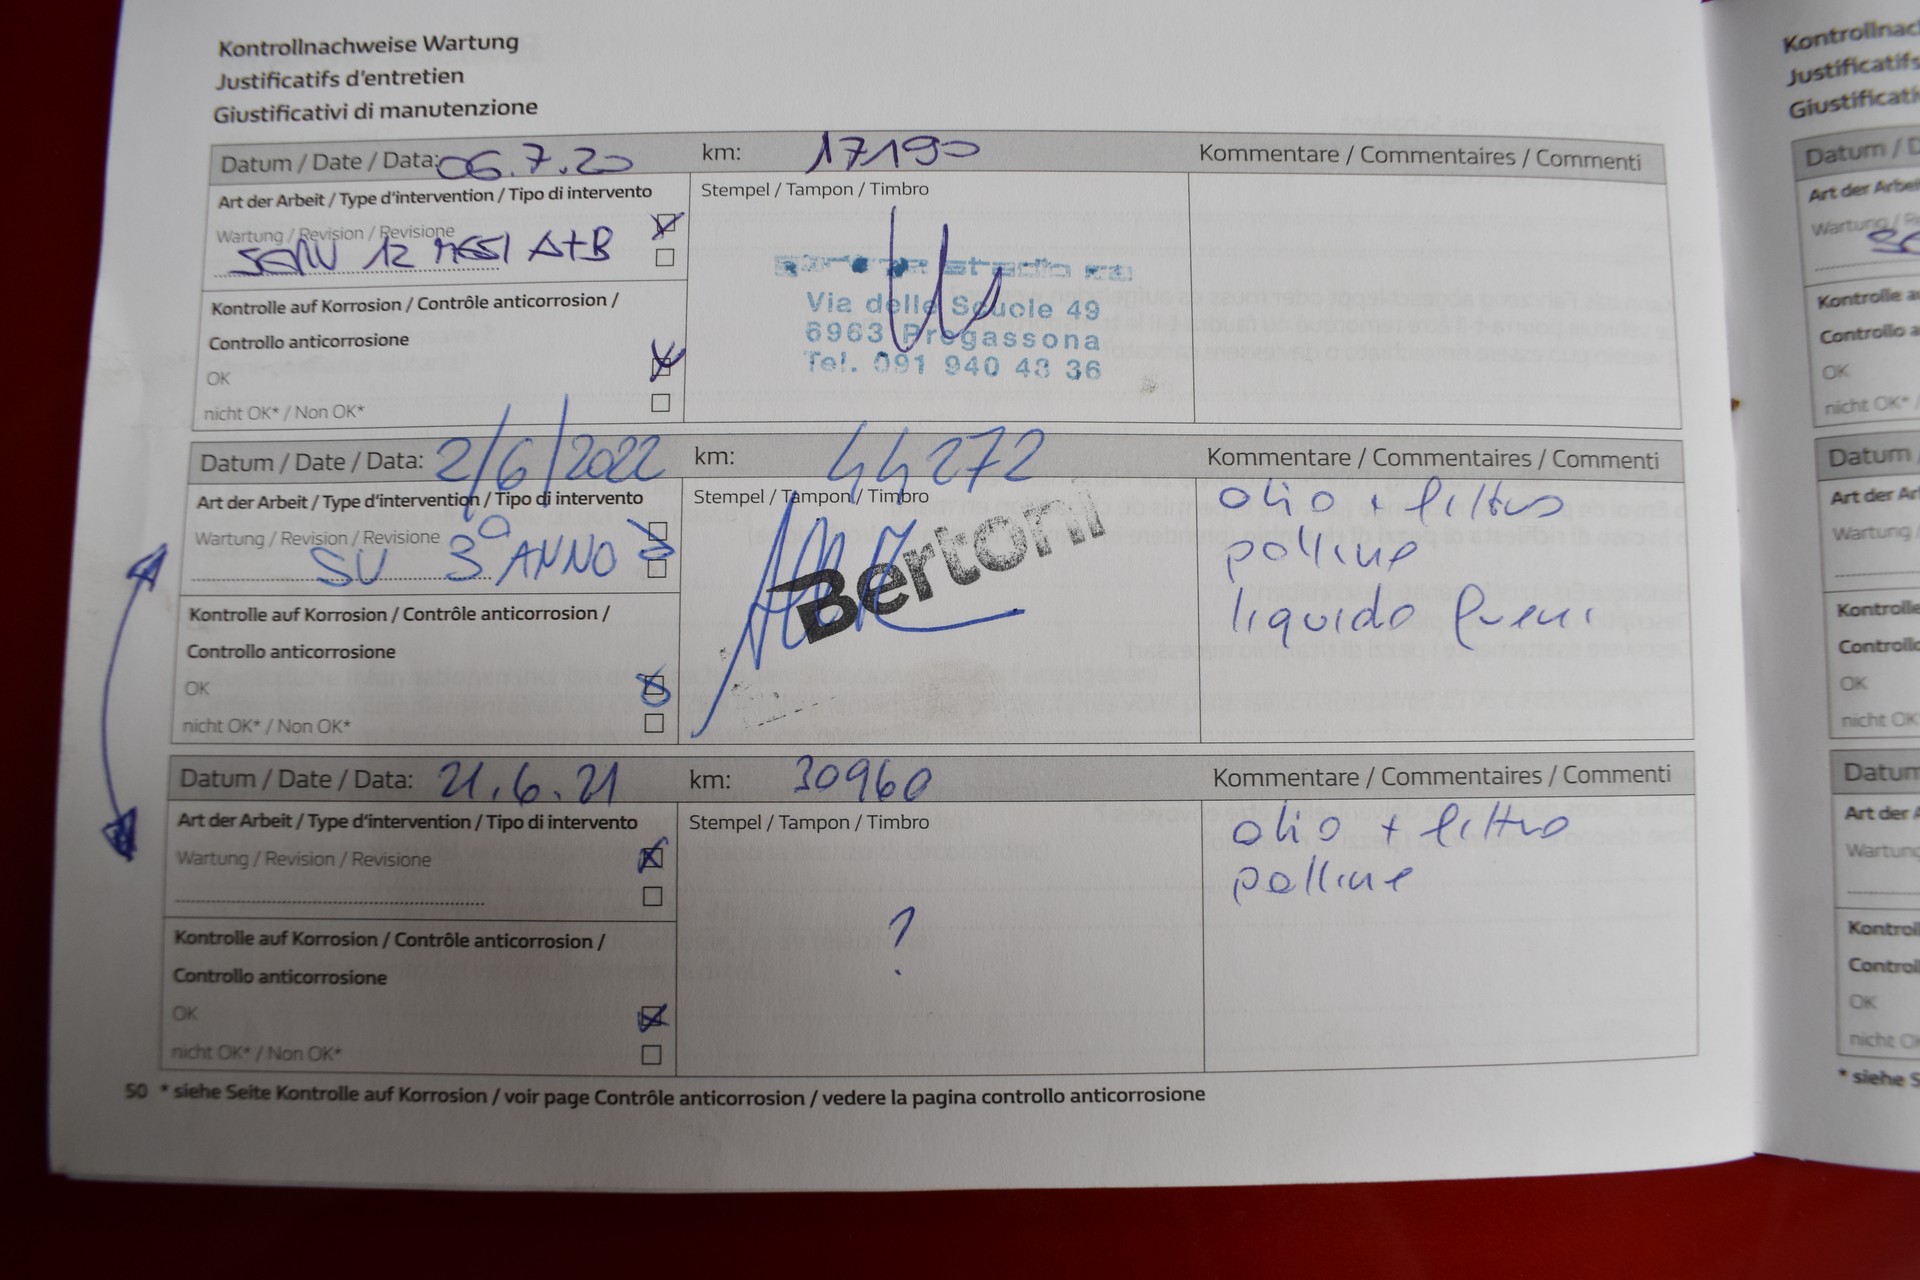 Kontrollnachweise Wartung
Justificatifs d'entretien
Giustificativi di manutenzione
Datum / Date / Data: 06.7.20 km: 17190 Kommentare / Commentaires / Commenti
Art der Arbeit / Type d'intervention / Tipo di intervento Stempel / Tampon / Timbro
Wartung / Revision / Revisione
SERV 12 MESI A+B
Via delle Scuole 49
6963 Pregassona
Tel. 091 940 48 36
Kontrolle auf Korrosion / Contrôle anticorrosion /
Controllo anticorrosione
OK
nicht OK* / Non OK*
Datum / Date / Data: 2/6/2022 km: 44272 Kommentare / Commentaires / Commenti
Art der Arbeit / Type d'intervention / Tipo di intervento Stempel / Tampon / Timbro
Wartung / Revision / Revisione
SU 3° ANNO
Bertoni
olio + filtro
polline
liquido freni
Kontrolle auf Korrosion / Contrôle anticorrosion /
Controllo anticorrosione
OK
nicht OK* / Non OK*
Datum / Date / Data: 21.6.21 km: 30960 Kommentare / Commentaires / Commenti
Art der Arbeit / Type d'intervention / Tipo di intervento Stempel / Tampon / Timbro
Wartung / Revision / Revisione
?
olio + filtro
polline
Kontrolle auf Korrosion / Contrôle anticorrosion /
Controllo anticorrosione
OK
nicht OK* / Non OK*
50 * siehe Seite Kontrolle auf Korrosion / voir page Contrôle anticorrosion / vedere la pagina controllo anticorrosione
Datum
Art der
Wartung
OK
nicht OK*
Datum
Art der
Wartung
OK
nicht OK
Datum
Art der
Wartung
OK
nicht
* siehe